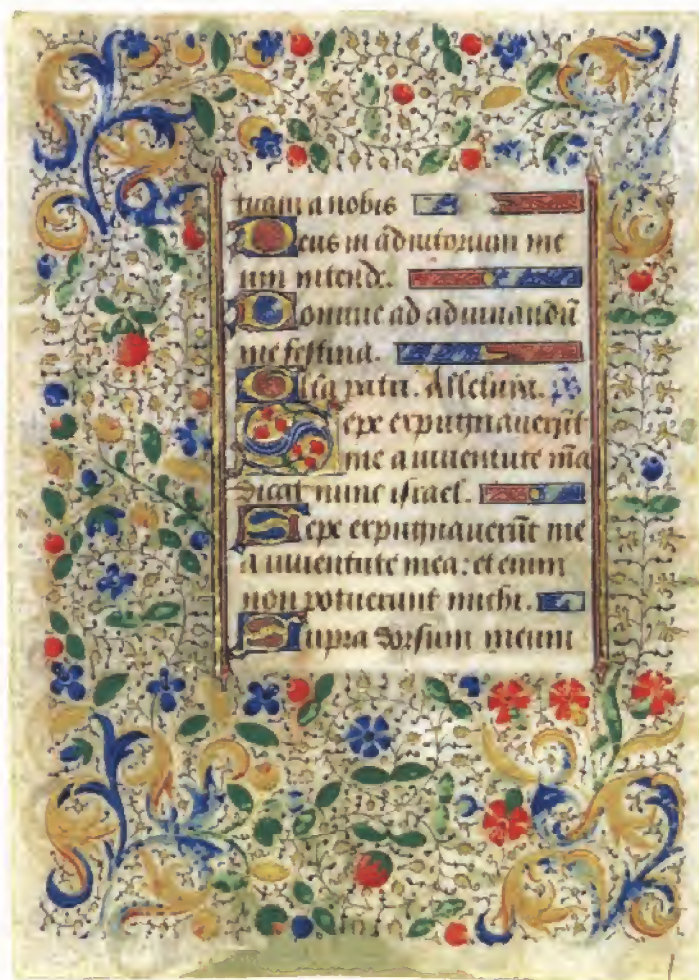 tuam a nobis
Deus in adiutorium me
um intende.
Domine ad adiuuandū
me festina.
Glia patri. Alleluia. ps
Sepe expugnauerūt
me a iuuentute mea
dicat nunc israel.
Sepe expugnauerūt me
a iuuentute mea: et enim
non potuerunt michi.
Supra dorsum meum